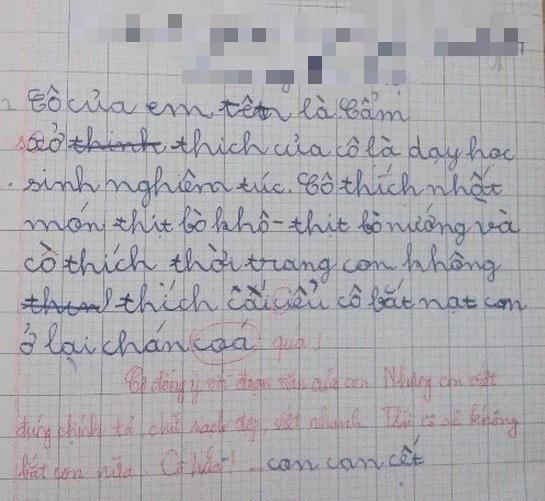 Cô của em tên là Cẩm
Sở thinh thích của cô là dạy học
sinh nghiêm túc. Cô thích nhất
món thịt bò khô - thịt bò nướng và
cô thích thời trang con không
thích cái iểu cô bắt nạt con
ở lại chán coá quá!
Cô đồng ý với đoạn văn của con Nhưng con viết
đúng chính tả chữ sạch đẹp, viết nhanh Thì cô sẽ không
bắt con nữa. Cô hứa! con can cết